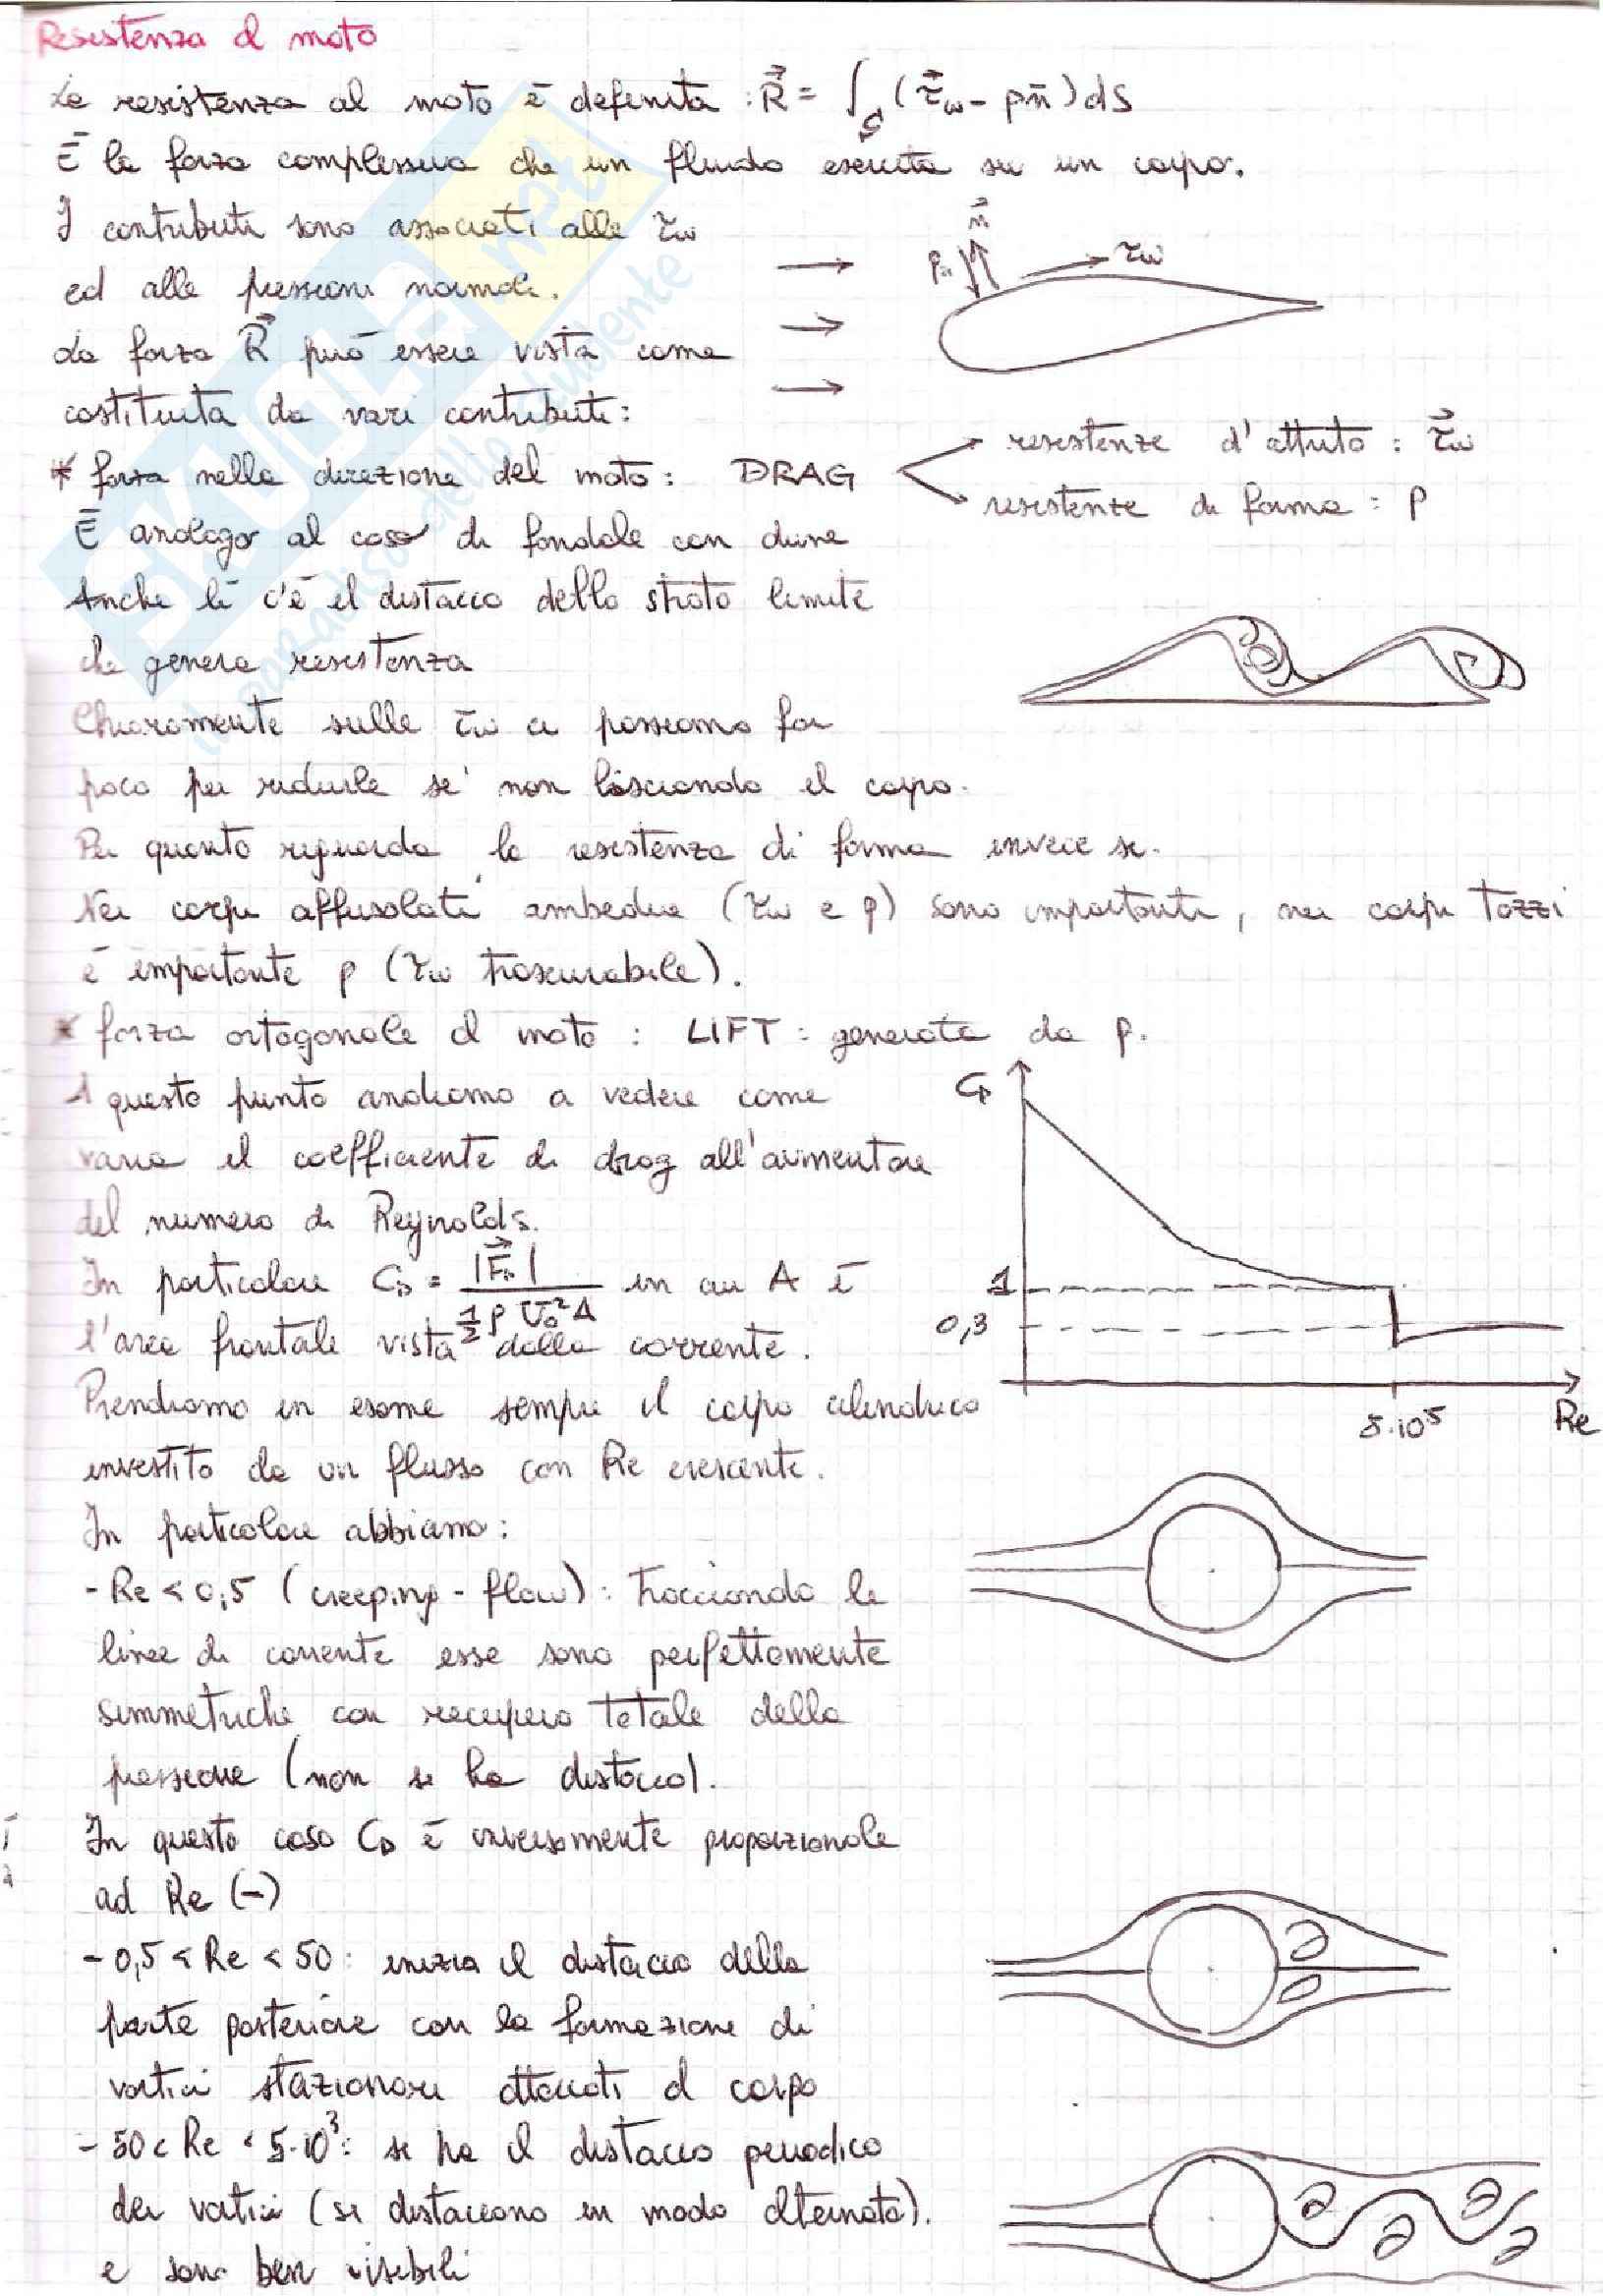 Resistenza al moto
La resistenza al moto è definita : R⃗ = ∫_S (τ⃗w - pn̄) dS
È la forza complessiva che un fluido esercita su un corpo.
I contributi sono associati alle τw
ed alle pressioni normali.
n⃗
pn
τw
La forza R⃗ può essere vista come
costituita da vari contributi:
* forza nella direzione del moto: DRAG
resistenze d'attrito : τ⃗w
resistenze di forma : p
È analogo al caso di fondale con dune
Anche lì c'è il distacco dello strato limite
che genera resistenza
Chiaramente sulle τw ci possiamo far
poco per ridurle se' non lisciando il corpo.
Per quanto riguarda la resistenza di forma invece si.
Nei corpi affusolati ambedue (τw e p) sono importanti, nei corpi tozzi
è importante p (τw trascurabile).
* forza ortogonale al moto : LIFT : generata da p.
A questo punto andiamo a vedere come
varia il coefficiente di drag all'aumentare
del numero di Reynolds.
In particolare CD = |F⃗D| / ½ρU₀²A in cui A è
l'area frontale vista dalla corrente.
CD
1
0,3
5·10⁵
Re
Prendiamo in esame sempre il corpo cilindrico
investito da un flusso con Re crescente.
In particolare abbiamo:
- Re < 0,5 (creeping - flow) : tracciando le
linee di corrente esse sono perfettamente
simmetriche con recupero totale della
pressione (non si ha distacco).
In questo caso CD è inversamente proporzionale
ad Re (-)
- 0,5 < Re < 50 : inizia il distacco della
parte posteriore con la formazione di
vortici stazionari attaccati al corpo
- 50 < Re < 5·10³ : si ha il distacco periodico
dei vortici (si distaccano in modo alternato).
e sono ben visibili
SKUOLA.net
il paradiso dello studente